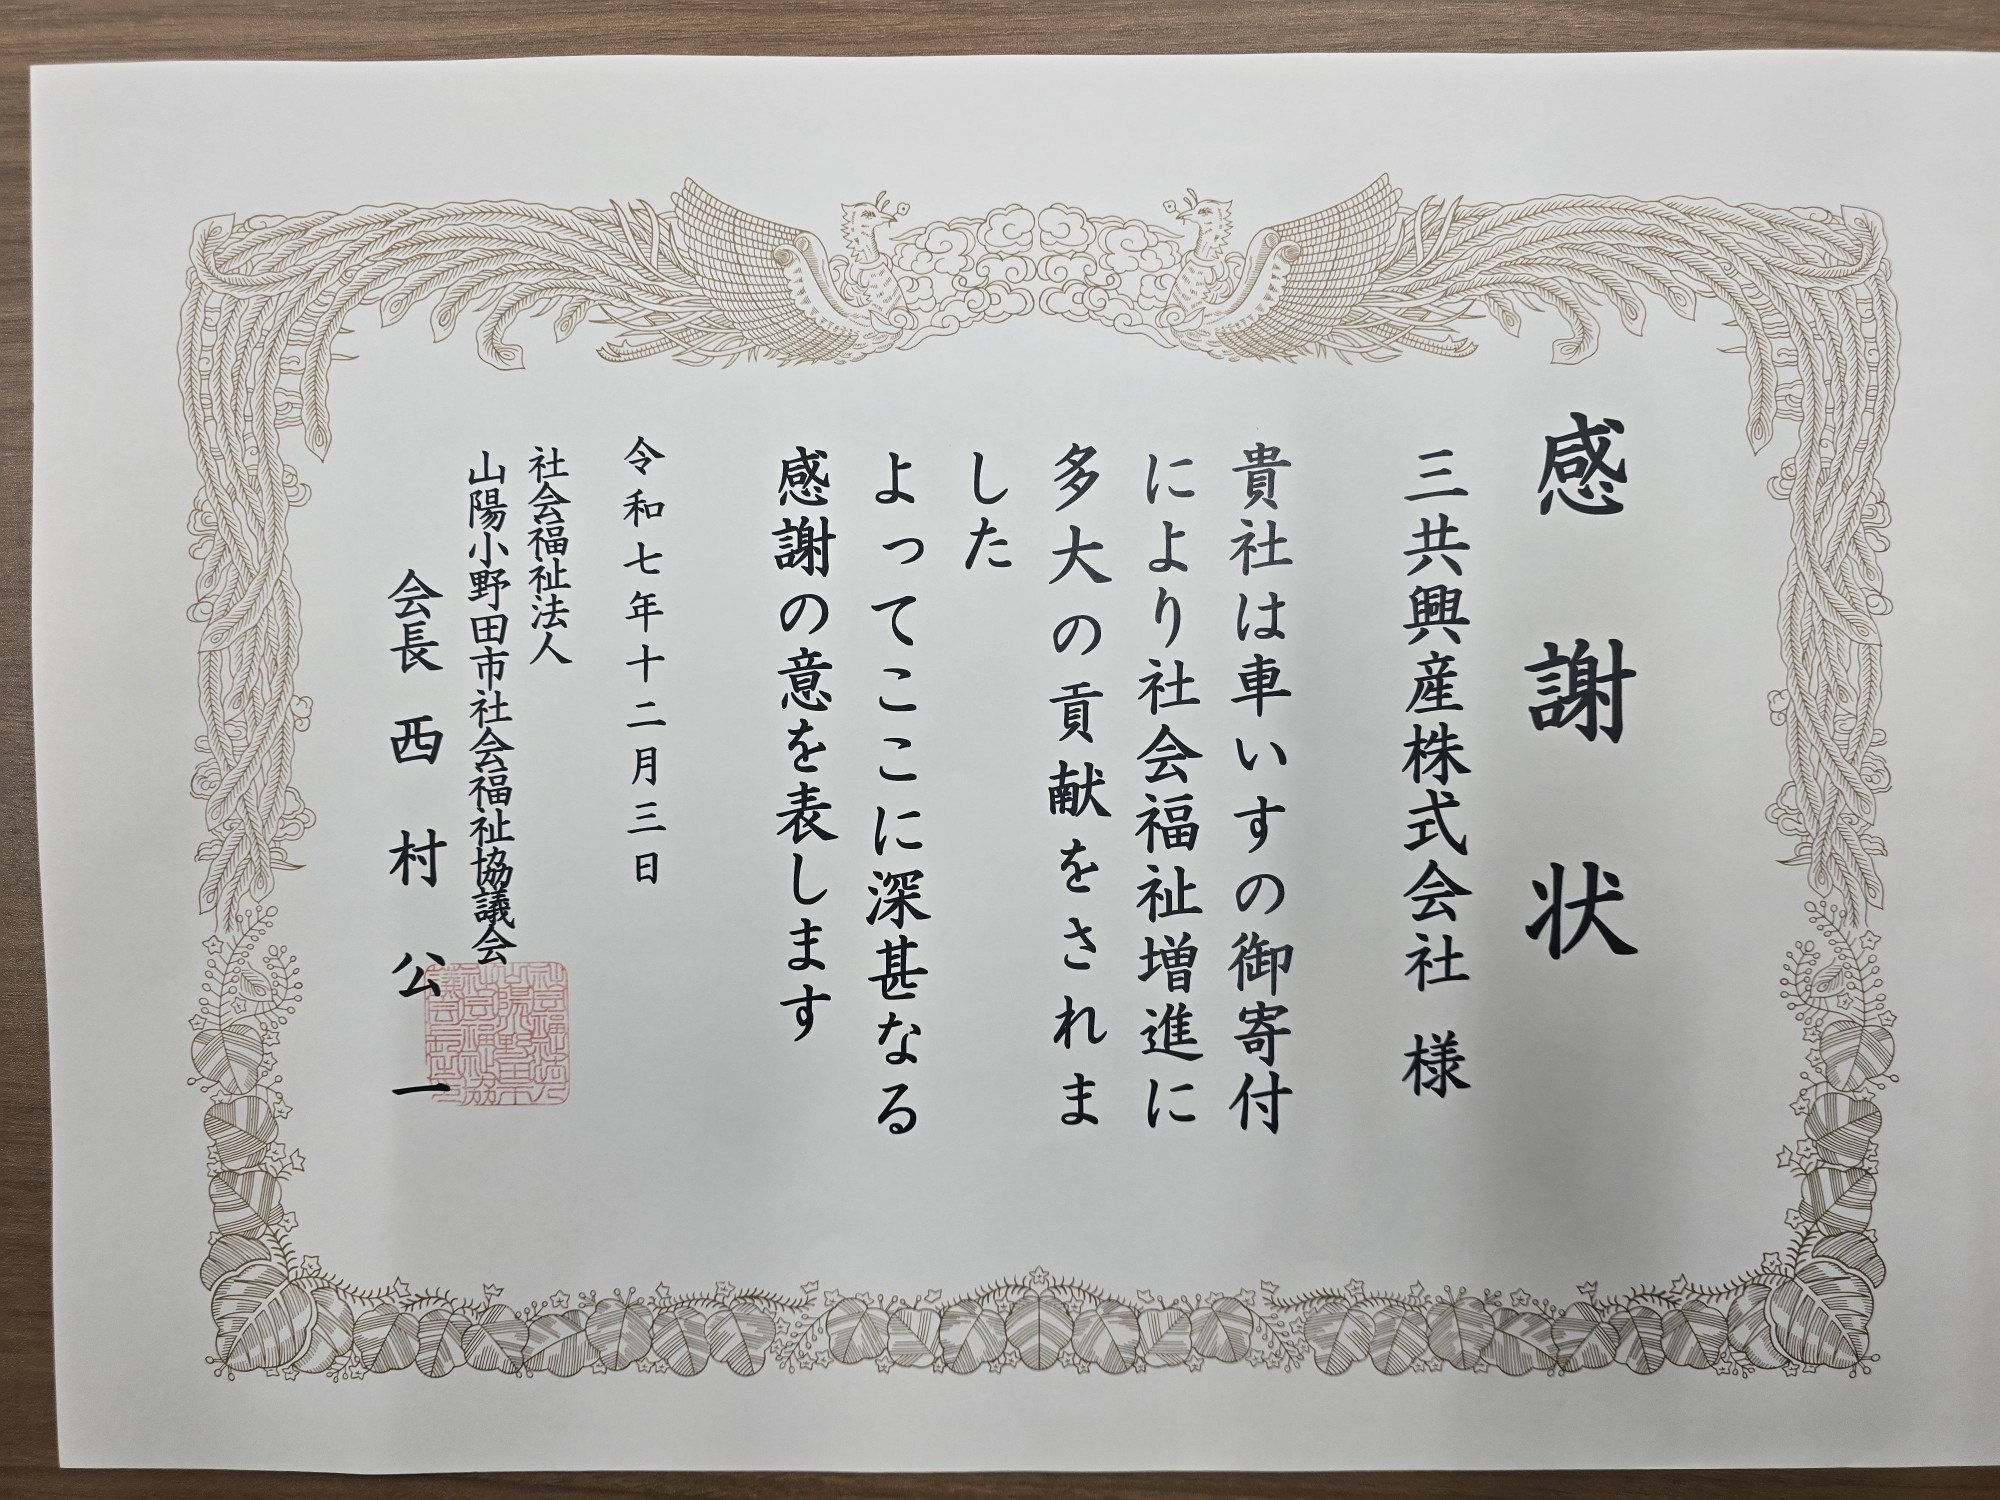 感謝状
三共興産株式会社 様
貴社は車いすの御寄付
により社会福祉増進に
多大の貢献をされま
した
よってここに深甚なる
感謝の意を表します
令和七年十二月三日
社会福祉法人
山陽小野田市社会福祉協議会
会長 西村公一